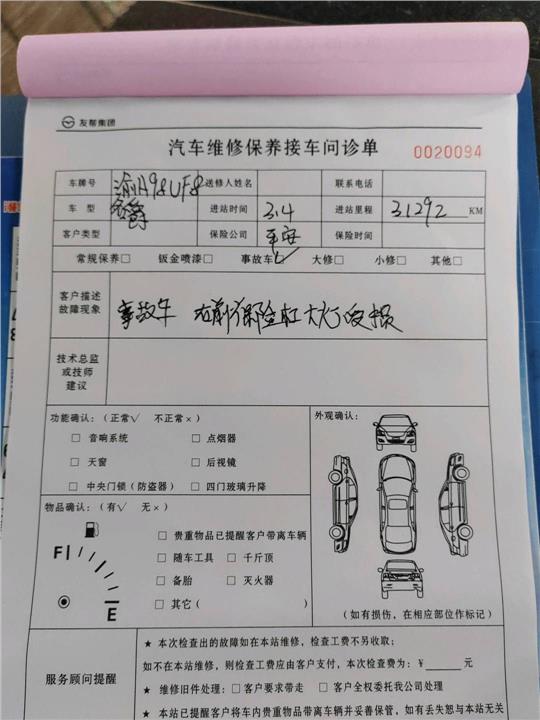 友帮集团
汽车维修保养接车问诊单 0020094
车牌号 渝A98UF8 送修人姓名 联系电话
车 型 名爵 进站时间 3.4 进站里程 31292 KM
客户类型 保险公司 平安 保险时间
常规保养□ 钣金喷漆□ 事故车☑ 大修□ 小修□ 其他□
客户描述
故障现象
事故车 右前保险杠大灯受损
技术总监
或技师
建议
功能确认:(正常√ 不正常×)
□ 音响系统 □ 点烟器
□ 天窗 □ 后视镜
□ 中央门锁(防盗器) □ 四门玻璃升降
外观确认:
(如有损伤,在相应部位作标记)
物品确认:(有√ 无×)
F
E
□ 贵重物品已提醒客户带离车辆
□ 随车工具 □ 千斤顶
□ 备胎 □ 灭火器
□ 其它( )
服务顾问提醒
★ 本次检查出的故障如在本站维修,检查工费不另收取;
如不在本站维修,则检查工费应由客户支付,本次检查费为:¥______元
★ 维修旧件处理:□ 客户要求带走 □ 客户全权委托我公司处理
★ 本站已提醒客户将车内贵重物品带离车辆并妥善保管,如有丢失恕与本站无关